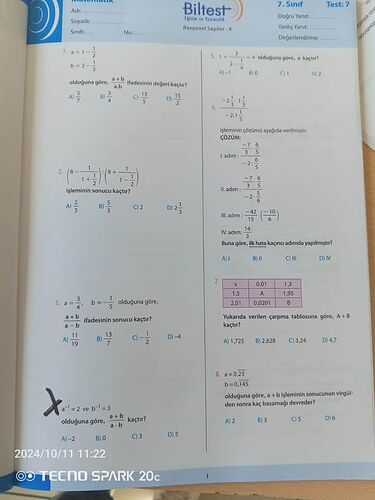 Matematik
Adı:
Soyadı:
Sınıfı: No:
Biltest
Eğitim ve Yayıncılık
Rasyonel Sayılar - 4
7. Sınıf Test: 7
Doğru Yanıt:
Yanlış Yanıt:
Değerlendirme:
1. a = 1 - 1/2
b = 2 - 1/3
olduğuna göre, a + b / a.b ifadesinin değeri kaçtır?
A) 5/7 B) 3/4 C) 13/5 D) 15/2
2. (8 - 1/(1 + 1/2)) : (9 + 1/(1 - 1/2))
işleminin sonucu kaçtır?
A) 2/3 B) 5/3 C) 2 D) 2 1/3
3. a = 3/4, b = -1/5 olduğuna göre,
a + b / a - b ifadesinin sonucu kaçtır?
A) 11/19 B) 13/7 C) -1/2 D) -4
a⁻¹ = 2 ve b⁻¹ = 3
olduğuna göre, a + b / a · b kaçtır?
A) -2 B) 0 C) 3 D) 5
= 4 olduğuna göre, a kaçtır?
A) -1 B) 0 C) 1 D) 2
6.
işleminin çözümü aşağıda verilmiştir.
ÇÖZÜM:
I. adım:
II. adım:
III. adım: -42/15 · (-10/6)
IV. adım: 14/3
Buna göre, ilk hata kaçıncı adımda yapılmıştır?
A) I B) II C) III D) IV
7.
x 0,01 1,3
1,5 A 1,95
2,01 0,0201 B
Yukarıda verilen çarpma tablosuna göre, A + B
kaçtır?
A) 1,725 B) 2,628 C) 3,24 D) 4,7
8. a = 0,23
b = 0,145
olduğuna göre, a + b işleminin sonucunun virgül-
den sonra kaç basamağı devreder?
A) 2 B) 3 C) 5 D) 6
2024/10/11 11:22
TECNO SPARK 20C
1